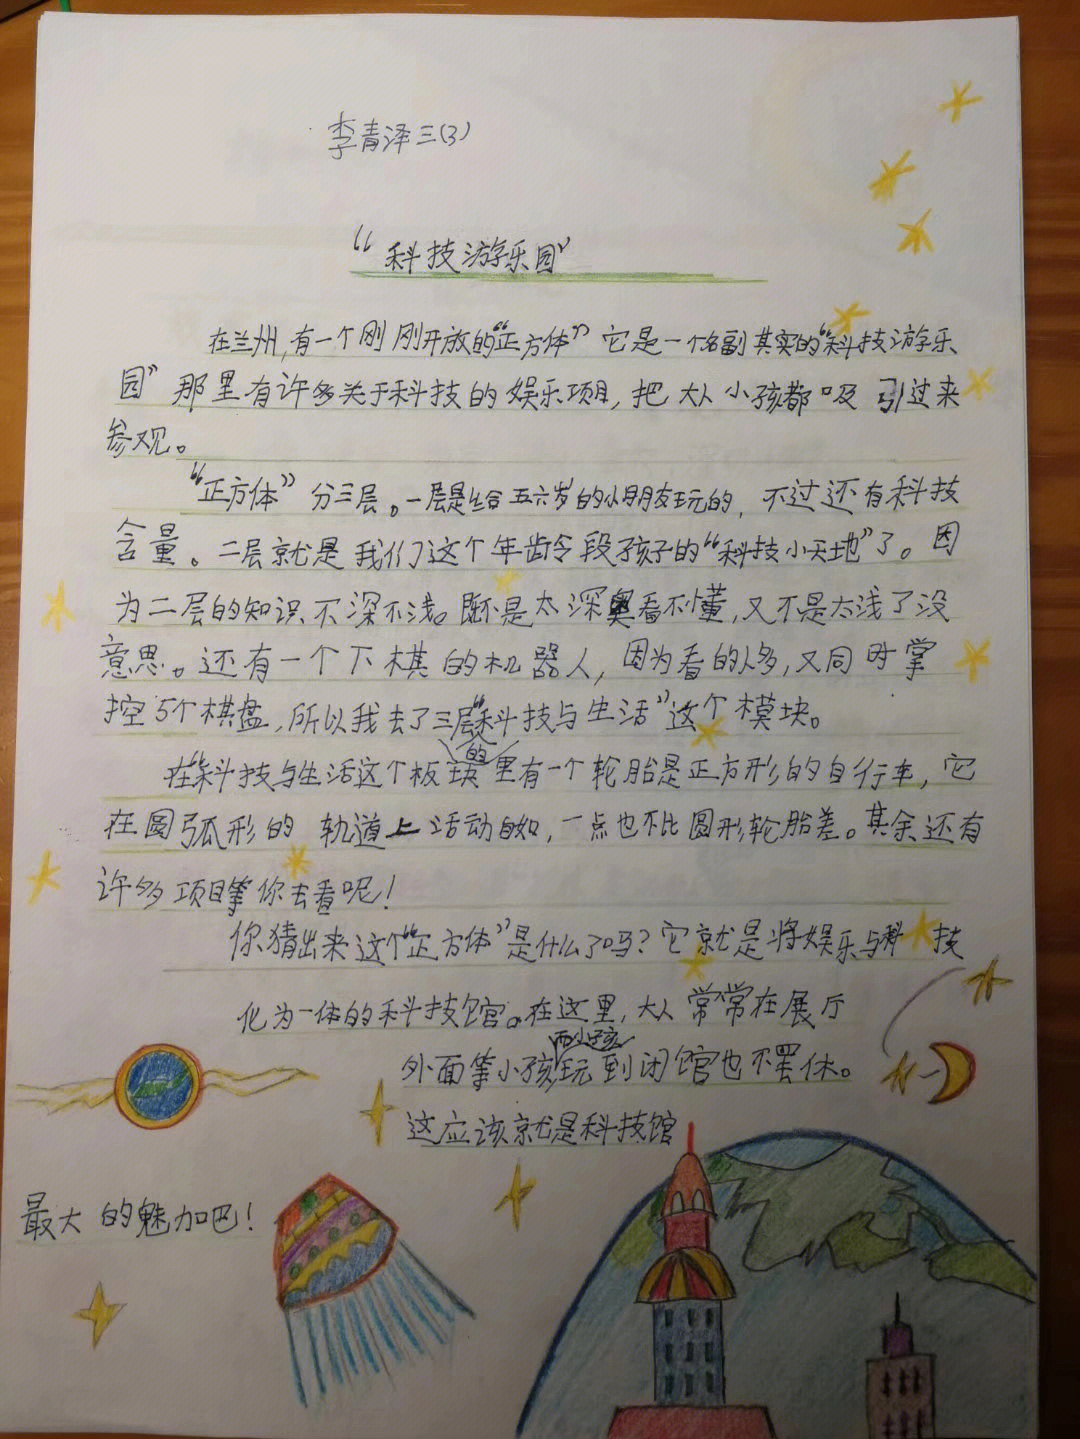 李青泽三(3)
“科技游乐园”
在兰州,有一个刚刚开放的“正方体”它是一个名副其实的“科技游乐
园”那里有许多关于科技的娱乐项目,把大人小孩都吸引过来
参观。
“正方体”分三层。一层是给五六岁的小朋友玩的,不过还有科技
含量。二层就是我们这个年龄段孩子的“科技小天地”了。因
为二层的知识不深不浅。既不是太深奥看不懂,又不是太浅了没
意思。还有一个下棋的机器人,因为看的人多,又同时掌
控5个棋盘,所以我去了三层“科技与生活”这个模块。
在“科技与生活这个板块的里有一个轮胎是正方形的自行车,它
在圆弧形的轨道上活动自如,一点也不比圆形轮胎差。其余还有
许多项目等你去看呢!
你猜出来这个“正方体”是什么了吗?它就是将娱乐与科技
化为一体的科技馆。在这里,大人常常在展厅
外面等小孩,而小孩玩到闭馆也不罢休。
这应该就是科技馆
最大的魅加吧!